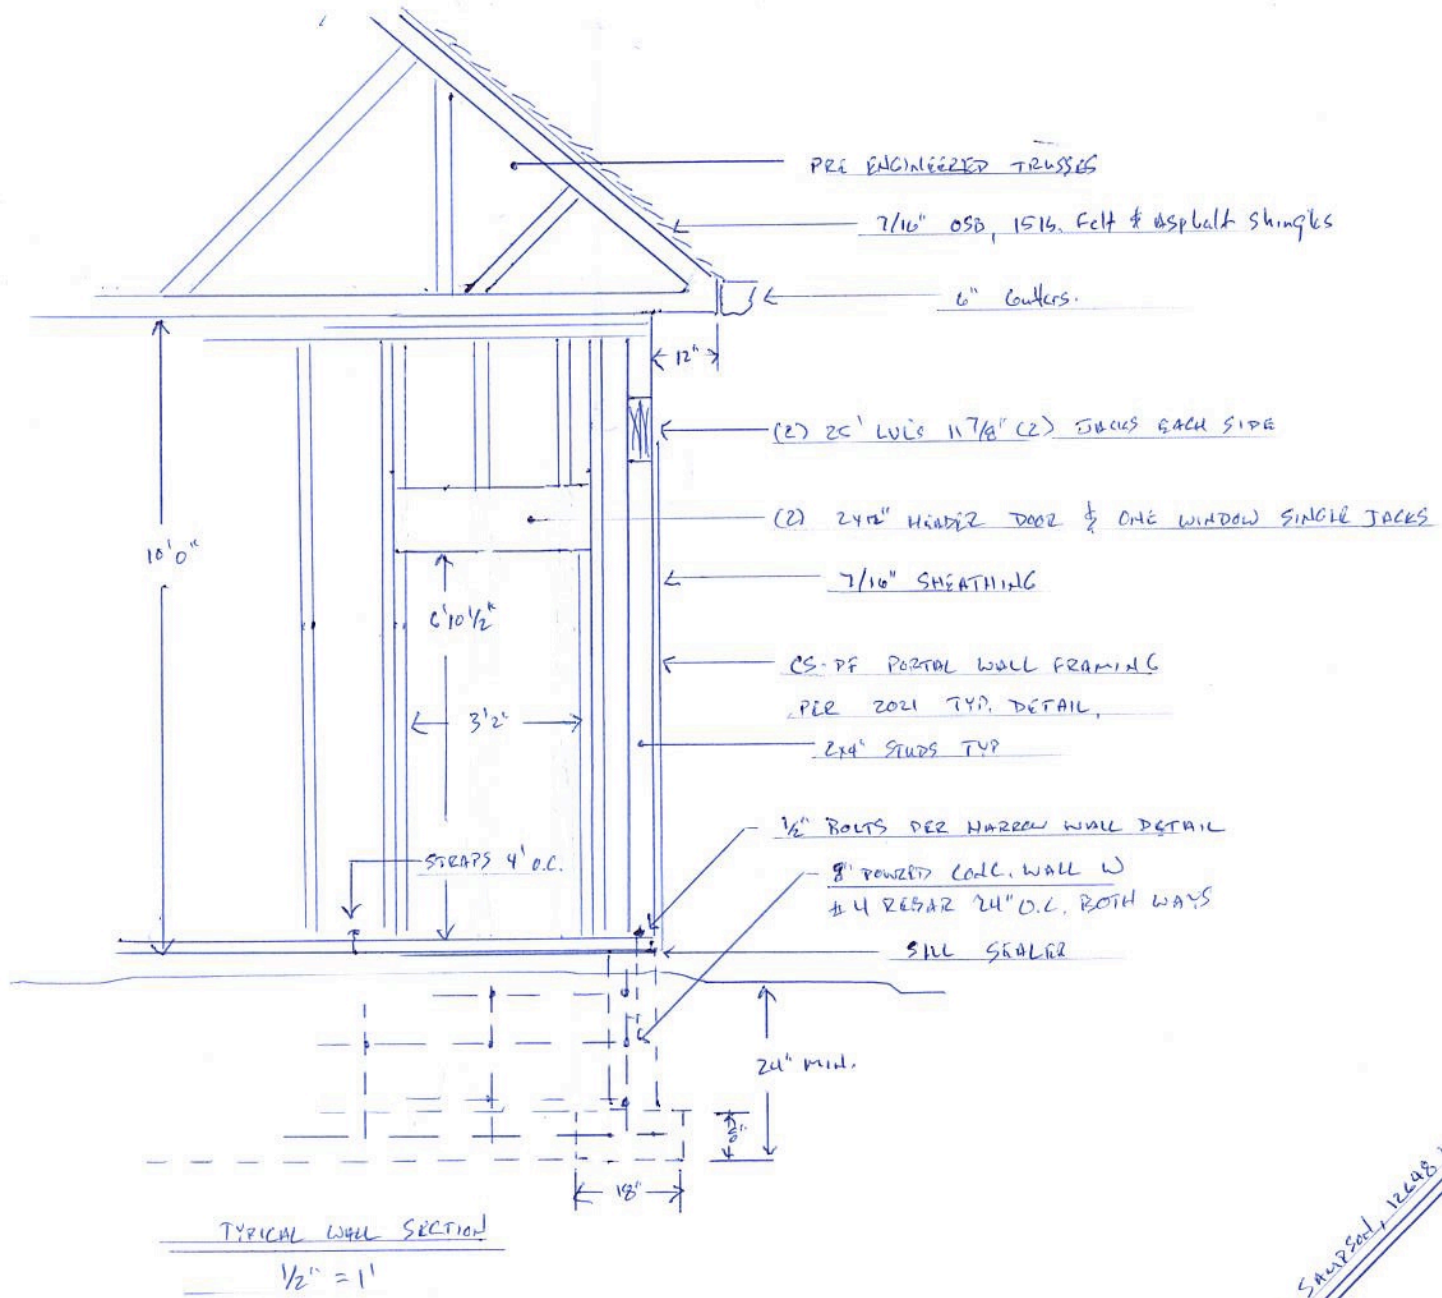 PRE ENGINEERED TRUSSES
7/16" OSB, 15lb. Felt & Asphalt Shingles
6" Gutters.
12"
(2) 25' LVL's 11 7/8" (2) JACKS EACH SIDE
(2) 2x12" HEADER DOOR & ONE WINDOW SINGLE JACKS
10'0"
7/16" SHEATHING
6'10 1/2"
CS-PF PORTAL WALL FRAMING
PER 2021 TYP. DETAIL,
3'2"
2x4" STUDS TYP
1/2" BOLTS PER NARROW WALL DETAIL
STRAPS 4' O.C.
8" POWRED CONC. WALL W
#4 REBAR 24" O.C. BOTH WAYS
SILL SEALER
24" MIN.
18"
TYPICAL WALL SECTION
1/2" = 1'
SAMPSON, 12648